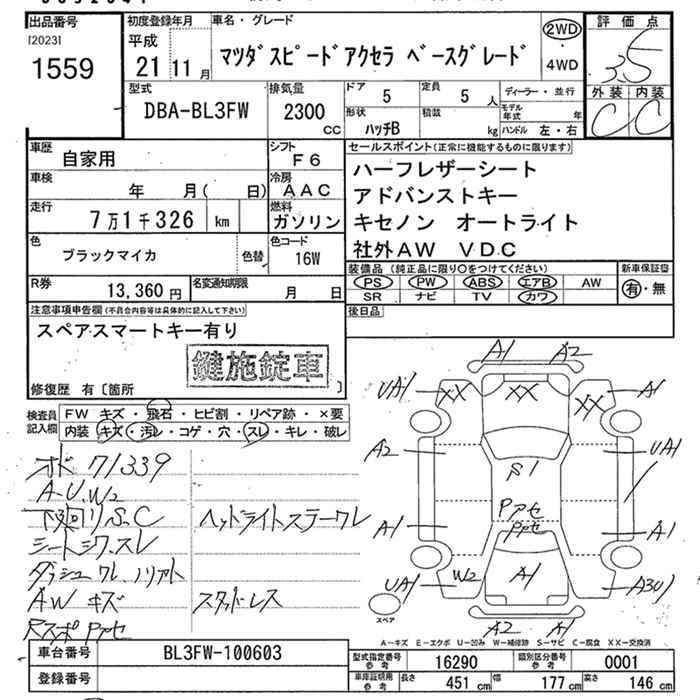 出品番号
[2023]
1559
初度登録年月
平成
21 11 月
車名・グレード
マツダスピードアクセラ ベースグレード
2WD
・
4WD
評価点
3.5
外装 内装
C C
型式
DBA-BL3FW
排気量
2300
CC
ドア
5
定員
5 人
形状
ハッチB
積載
kg
ディーラー・並行
モデル年式 年
ハンドル 左・右
車歴
自家用
シフト
F6
車検
年 月( 日)
冷房
AAC
走行
7万1千326 km
燃料
ガソリン
色
ブラックマイカ
色替
色コード
16W
R券
13,360 円
名変通知期限
月 日
セールスポイント(正常に機能するものに限ります)
ハーフレザーシート
アドバンストキー
キセノン オートライト
社外AW VDC
装備品(純正品に限り○をつけてください)
新車保証書
PS PW ABS エアB AW
有・無
SR ナビ TV カワ
後日品
注意事項申告欄(不具合内容等は具体的に記入して下さい)
スペアスマートキー有り
鍵施錠車
修復歴 有〔箇所 〕
検査員記入欄
FW キズ・飛石・ヒビ割・リペア跡・×要
内装 キズ・汚レ・コゲ・穴・スレ・キレ・破レ
オド 71339
A-U.W2
下廻り S.C
シートシワ.スレ
ダッシュ ワレ.ノリアト
AW キズ
Rスポ Pアセ
ヘッドライトステーワレ
スタッドレス
A1 A2
UA1 XX XX XX A1
A2 S1 UA1
Pアセ
A1 Pアセ A1
UA1 W2 A1 A3U1
スペア
A2 A1
A-キズ E-エクボ U-凹み W-補修跡 S-サビ C-腐食 XX-交換済
車台番号
BL3FW-100603
登録番号
型式指定番号
参考
16290
類別区分番号
参考
0001
車庫証明用
参考
長さ 451 cm
幅 177 cm
高さ 146 cm